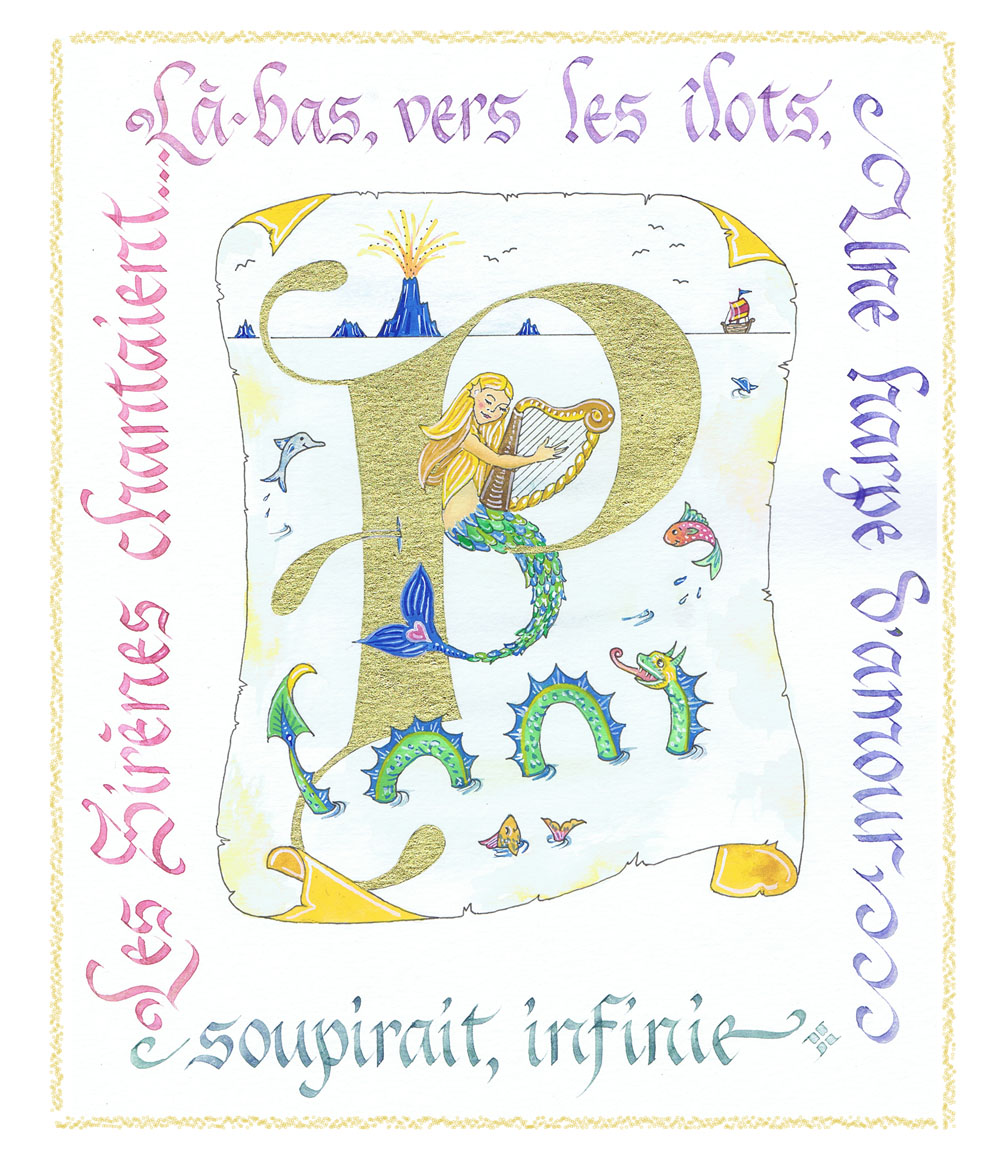 Les Sirènes chantaient...
Là-bas, vers les îlots,
Une harpe d'amour
soupirait, infinie
P